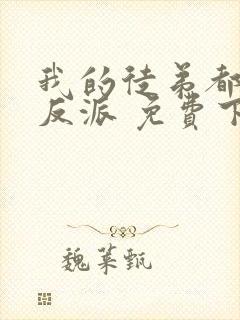 我的徒弟都
反派 免费下
魏菜甄